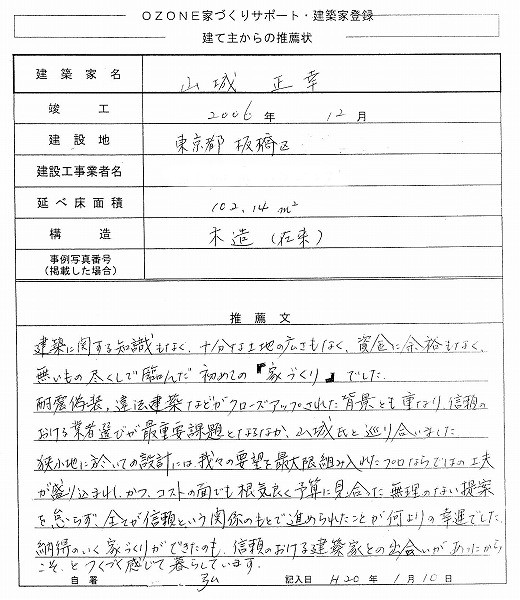 OZONE家づくりサポート・建築家登録
建て主からの推薦状
建築家名 山城 正幸
竣工 2006年 12月
建設地 東京都 板橋区
建設工事業者名
延べ床面積 102.14m²
構造 木造(在来)
事例写真番号
(掲載した場合)
推薦文
建築に関する知識もなく、十分な土地の広さもなく、資金に余裕もなく、
無いもの尽くしで臨んだ初めての『家づくり』でした。
耐震偽装、違法建築などがクローズアップされた背景とも重なり、信頼の
おける業者選びが最重要課題となるなか、山城氏と巡り合いました。
狭小地に於いての設計には、我々の要望を最大限組み入れたプロならではの工夫
が盛り込まれ、かつ、コストの面でも根気良く予算に見合った無理のない提案
を怠らず、全てが信頼という関係のもとで進められたことが何よりの幸運でした。
納得のいく家づくりができたのも、信頼のおける建築家との出会いがあったから
こそ、とつくづく感じて暮らしています。
自署 記入日 H20年 1月10日